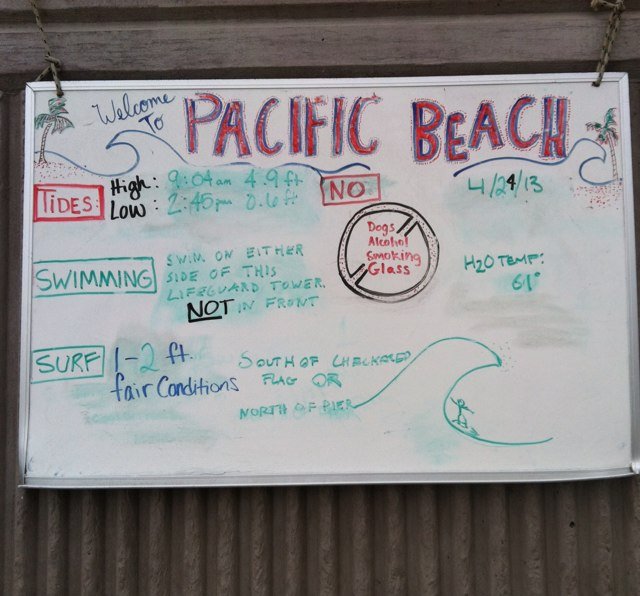 Welcome To PACIFIC BEACH
TIDES: High: 9:04am 4.9 ft
Low: 2:45pm 0.6 ft
NO
Dogs
Alcohol
Smoking
Glass
4/24/13
H2O TEMP:
61°
SWIMMING
SWIM ON EITHER
SIDE OF THIS
LIFEGUARD TOWER.
NOT IN FRONT
SURF
1-2 ft.
fair Conditions
SOUTH OF CHECKERED
FLAG OR
NORTH OF PIER